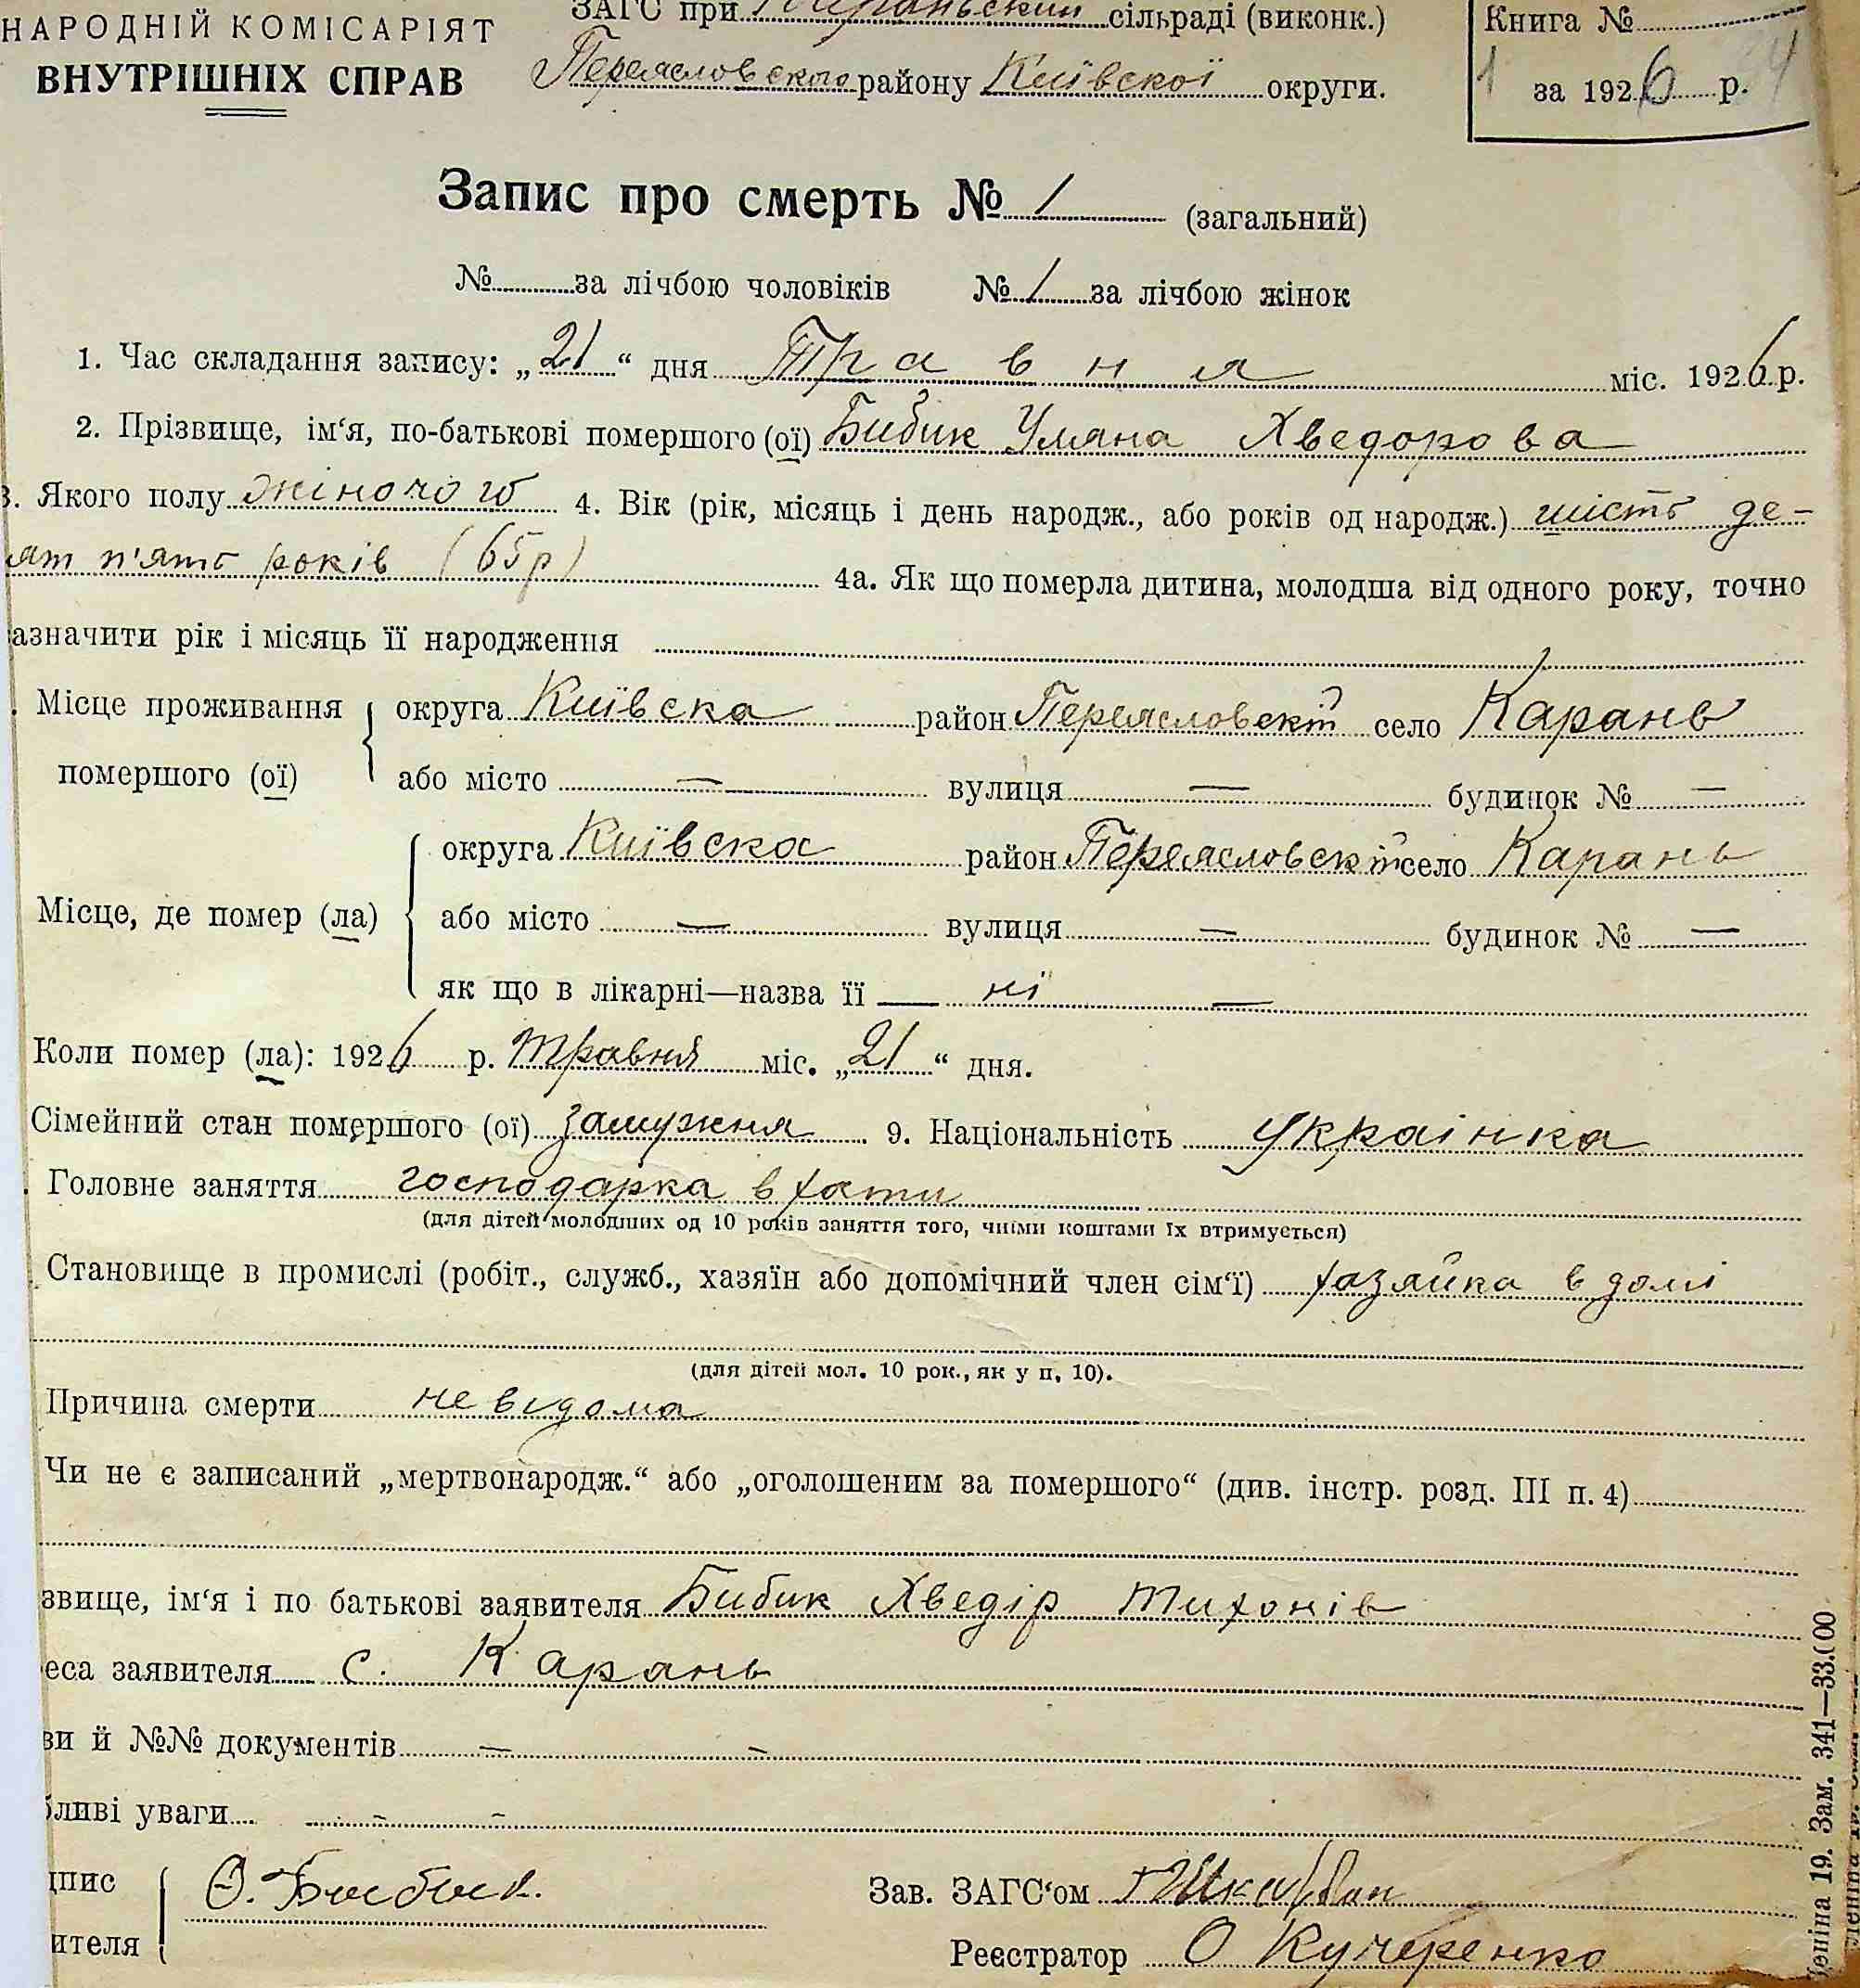 НАРОДНІЙ КОМІСАРІЯТ
ВНУТРІШНІХ СПРАВ
ЗАГС при Каранський сільраді (виконк.)
Переясловского району Київскої округи.
Книга №
1 за 1926 р.
Запис про смерть № 1 (загальний)
№ за лічбою чоловіків № 1 за лічбою жінок
1. Час складання запису: „21“ дня Травня міс. 1926 р.
2. Прізвище, ім‘я, по-батькові помершого (ої) Бибик Уляна Хведорова
3. Якого полу жіночого 4. Вік (рік, місяць і день народж., або років од народж.) шість де-
ят п'ять років (65 р) 4а. Як що померла дитина, молодша від одного року, точно
азначити рік і місяць її народження
Місце проживання помершого (ої) округа Київска район Переясловскій село Карань
або місто — вулиця — будинок № —
Місце, де помер (ла) округа Київска район Переясловскій село Карань
або місто — вулиця — будинок № —
як що в лікарні—назва її — ні —
Коли помер (ла): 1926 р. травня міс. „21“ дня.
Сімейний стан помершого (ої) замужня 9. Національність Українка
Головне заняття господарка в хати
(для дітей молодших од 10 років заняття того, чиїми коштами їх втримується)
Становище в промислі (робіт., служб., хазяїн або допомічний член сім‘ї) хазяйка в домі
(для дітей мол. 10 рок., як у п. 10).
Причина смерти невідома
Чи не є записаний „мертвонародж.“ або „оголошеним за помершого“ (див. інстр. розд. III п. 4)
звище, ім‘я і по батькові заявителя Бибик Хведір Тихонів
еса заявителя с. Карань
ви й №№ документів — –
бливі уваги – –
дпис
ителя
Ѳ. Бибик.
Зав. ЗАГС‘ом
Реєстратор О Кучеренко
Леніна 19. Зам. 341—33.000